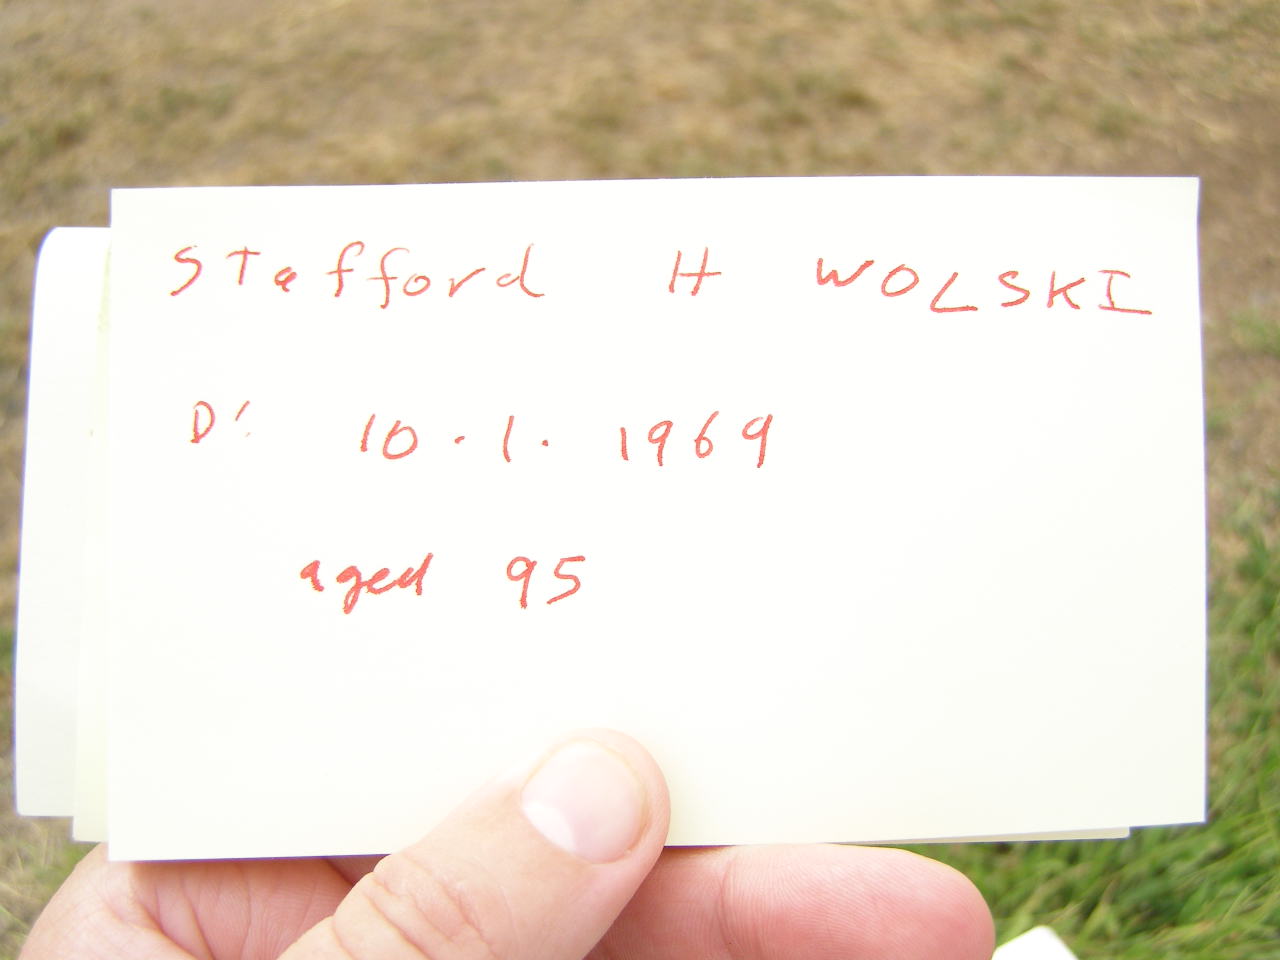 Stafford H WOLSKI
D: 10.1.1969
aged 95